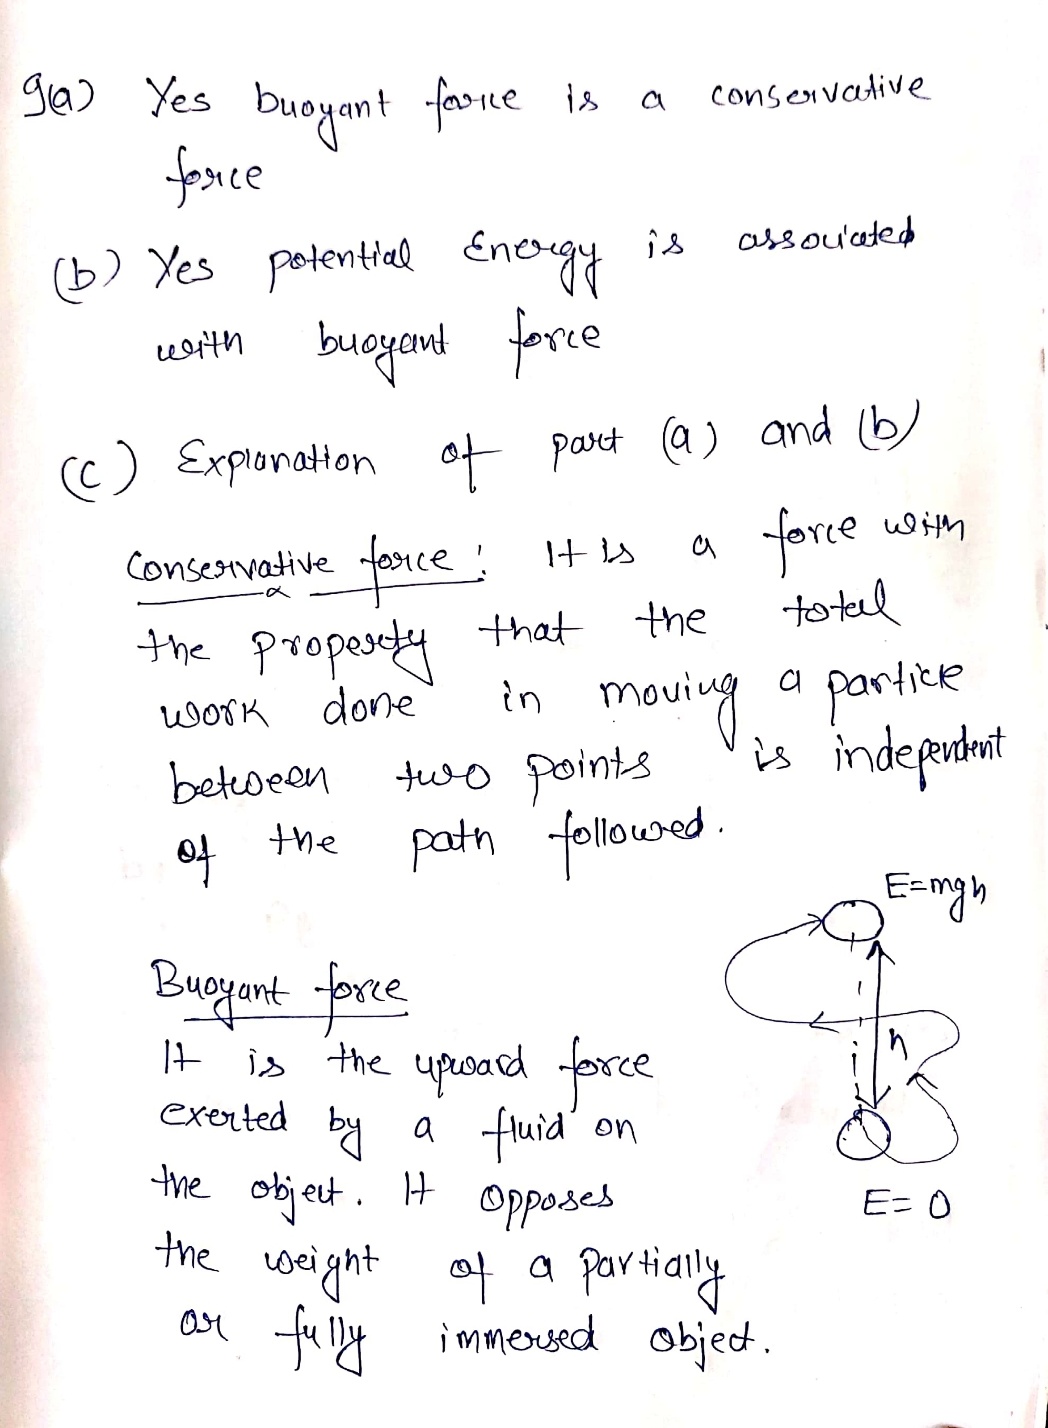 9(a) Yes buoyant force is a conservative
force
(b) Yes potential Energy is associated
with buoyant force
(c) Explanation of part (a) and (b)
Conservative force: It is a force with
the property that the total
work done in moving a particle
between two points is independent
of the path followed.
E=mgh
Buoyant force
h
It is the upward force
exerted by a fluid on
the object. It opposes
E=0
the weight of a partially
or fully immersed object.